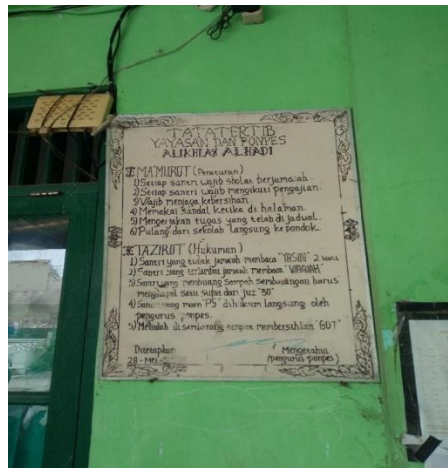 TATATERTIB
YAYASAN DAN PONPES
ALIKHLAS ALHADI
I MA'MUROT (Peraturan)
1) Setiap santri wajib sholat berjama'ah.
2) Setiap santri wajib mengikuti pengajian.
3) Wajib menjaga kebersihan.
4) Memakai sandal ketika di halaman.
5) Mengerjakan tugas yang telah di jadwal.
6) Pulang dari sekolah langsung ke pondok.
II TAZIROT (Hukuman)
1) Santri yang tidak jamaah membaca "YASIN" 2
2) Santri yang terlambat jamaah membaca "WAQIAH"
3) Santri yang membuang sampah sembarangan harus
menghapal satu surat dari juz "30"
4) Santri yang main "PS" dihukum langsung oleh
pengurus ponpes.
5) di sembarang tempat membersihkan "GOT"
Ditetapkan
28 - Mei
Mengetahui
(pengurus ponpes)